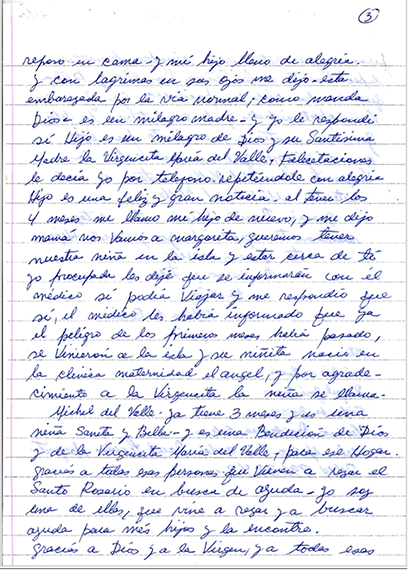 3
reposo en cama - y mi hijo lleno de alegria.
y con lagrimas en sus ojos me dijo - esta
embarazada por la via normal, como manda
Dios - es un milagro madre - y yo le respondi
sí Hijo es un milagro de Dios y su Santisima
Madre la Virgencita María del Valle, Felicitaciones
le decia yo por telefono. repitiendole con alegria
Hijo es una feliz y gran noticia. al tener los
4 meses me llamo mi hijo de nuevo, y me dijo
mamá nos vamos a margarita, queremos tener
nuestra niña en la isla y estar cerca de tí
yo preocupada les dije que se informarán con el
médico sí podia Viajar y me respondio que
sí, el médico les habia informado que ya
el peligro de los primeros meses habia pasado,
se vinieron a la isla y su niñita nacio en
la clinica maternidad el angel, y por agrade-
cimiento a la Virgencita la niña se llama.
Michel del Valle. ya tiene 3 meses y es una
niña Sanita y Bella - y es una Bendicion de Dios
y de la Virgencita María del Valle, para ese Hogar.
gracias a todas esas personas que vienen a rezar el
Santo Rosario en busca de ayuda - yo soy
una de ellas, que vine a rezar y a buscar
ayuda para mis hijos y la encontre.
gracias a Dios y a la Virgen, y a todas esas